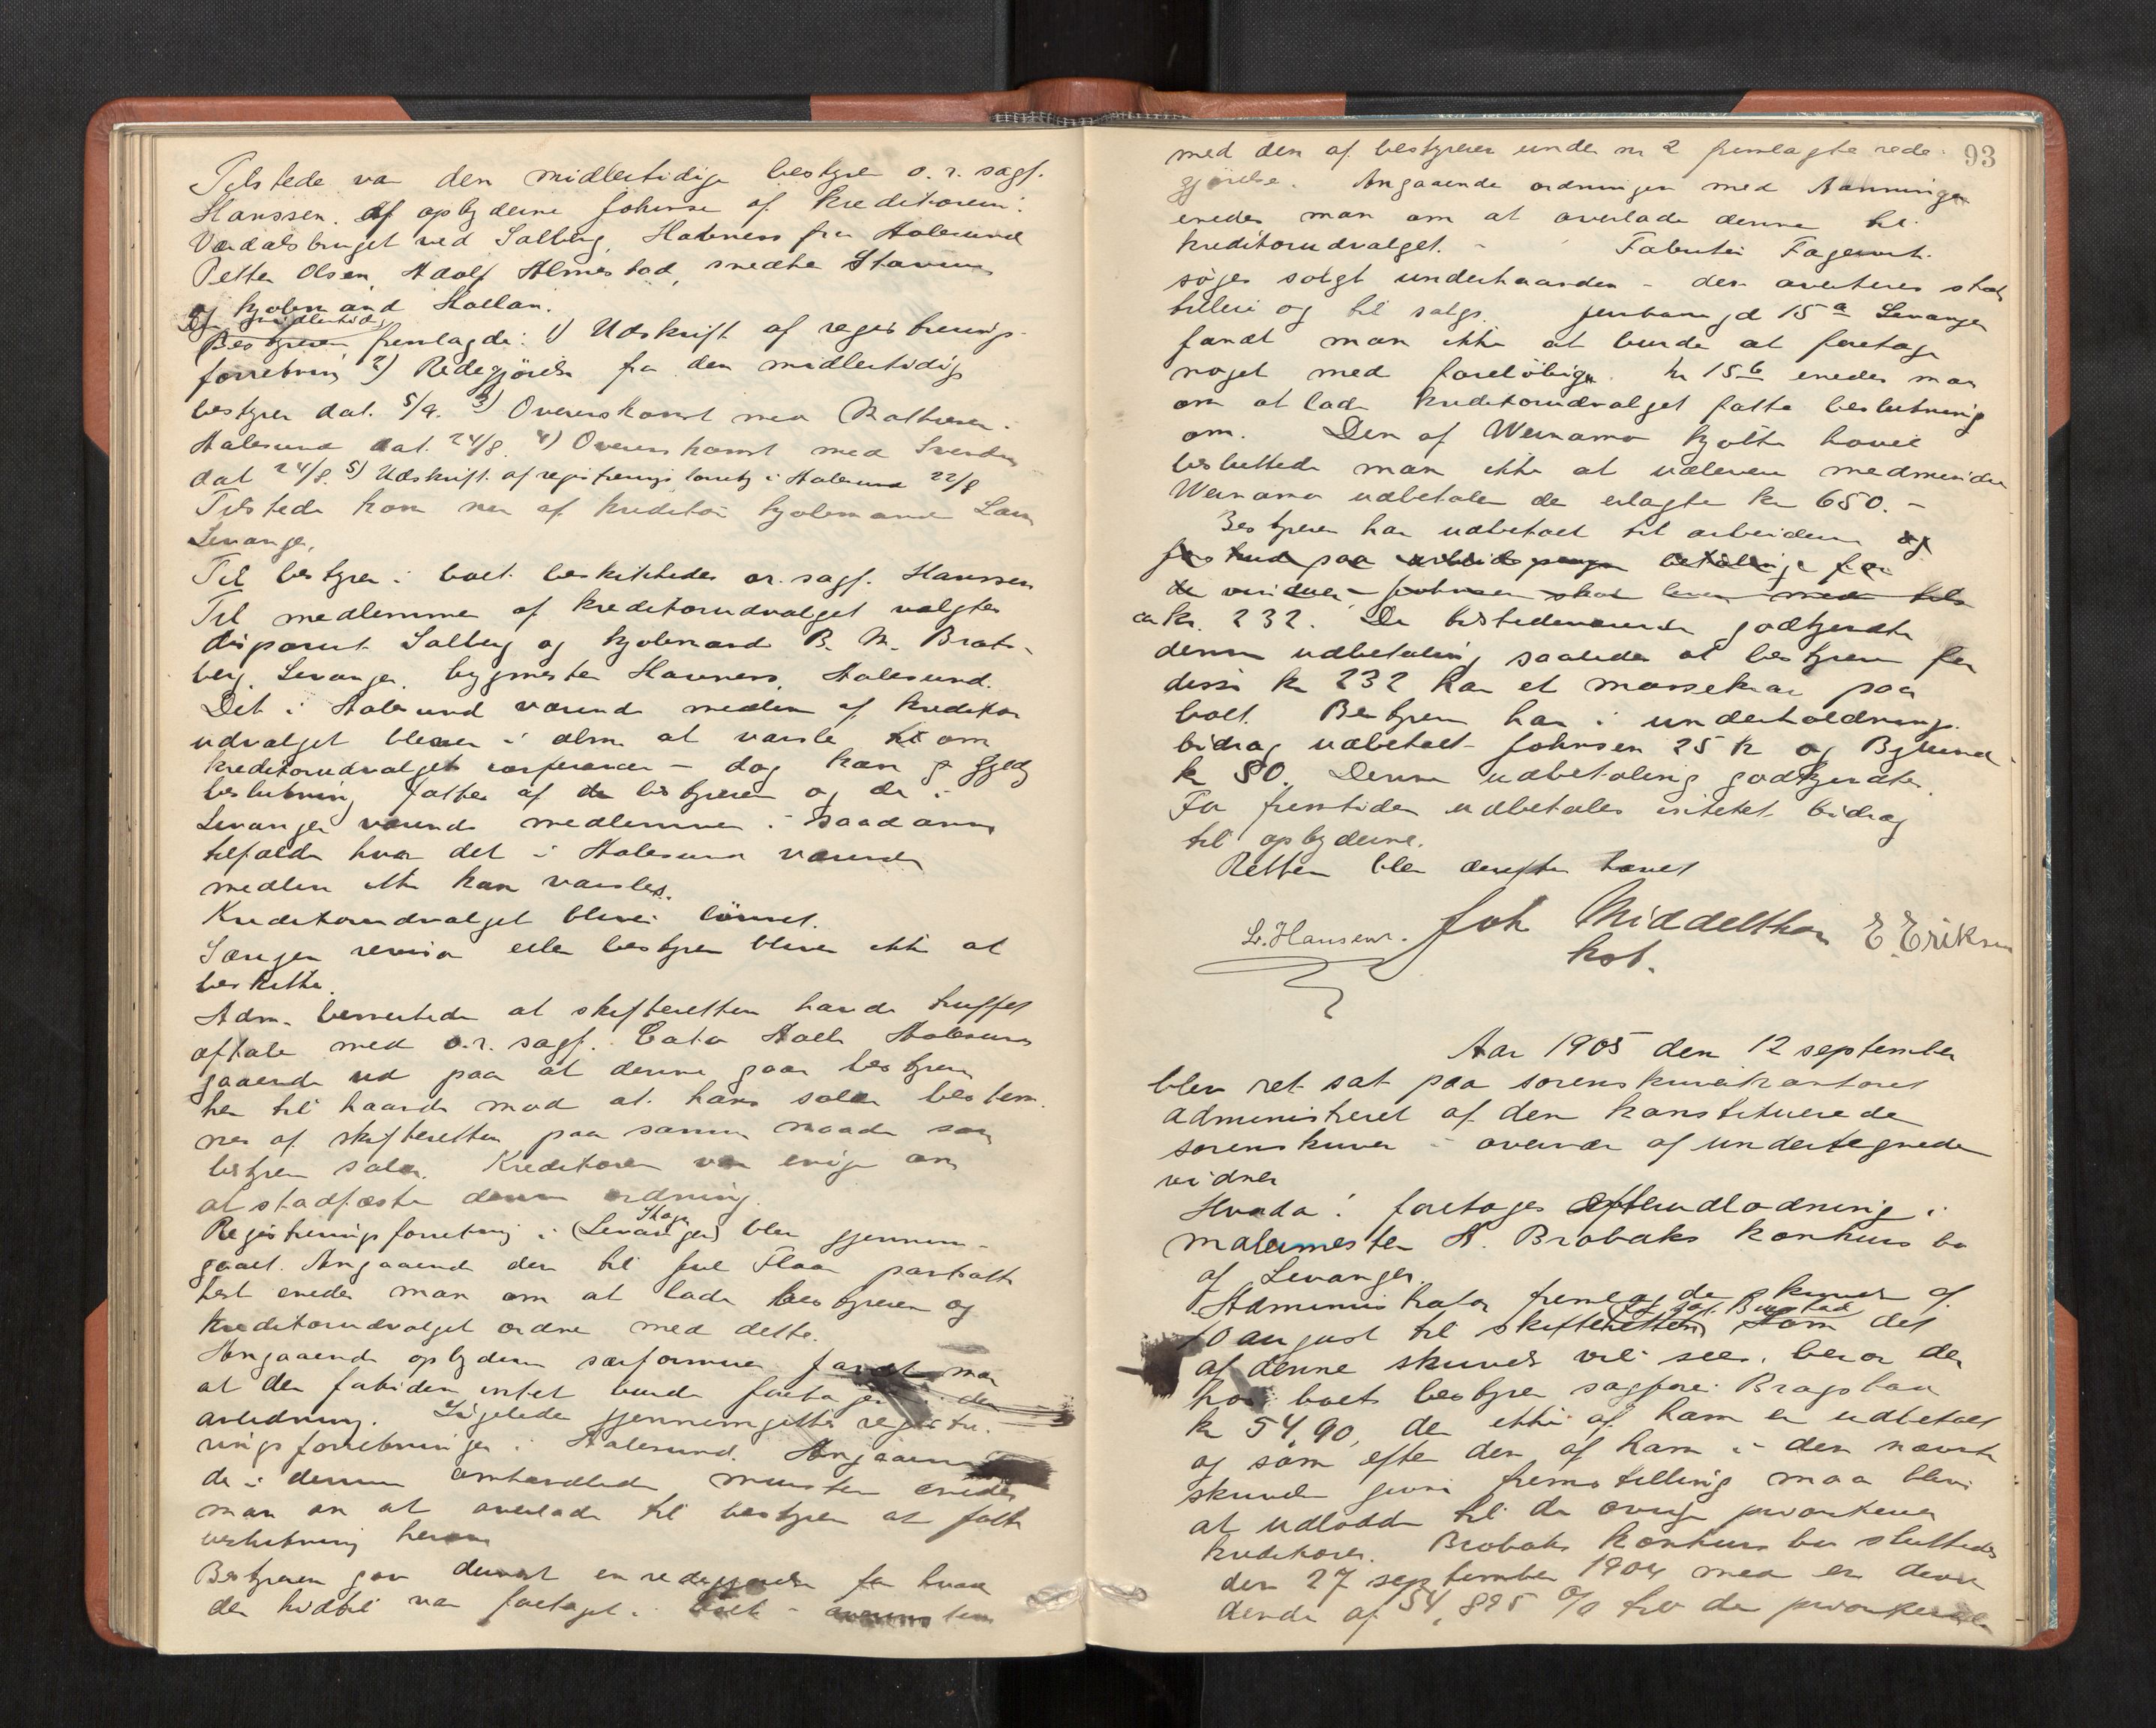 Tilstede var den midlertidige bestyrer o. r. sagf.
Hanssen. Af opbyderne Johnsen af kreditorerne:
Værdalsbruget ved Salberg, Havness fra Aalesund
Petter Olsen, Adolf Almestad, snedker Stavrum
og kjøbmand Hallan.
Den midlertidige
Bestyreren fremlagde: 1) Udskrift af registrerings
forretning 2) Redegjörelse fra den midlertidige
bestyrer dat. 5/9. 3) Overenskomst med Mathisen
Aalesund dat. 24/8. 4) Overenskomst med
dat 24/8. 5) Udskrift af registrerings forretn i Aalesund 22/8
Tilstede kom nu af kreditor kjøbmand
Levanger.
Til bestyrer i boet beskikkedes or. sagf. Hanssen
Til medlemmer af kreditorudvalget valgtes
disponent Salberg og kjøbmand B. N. Brat-
berg, Levanger, bygmester Havness, Aalesund.
Det i Aalesund værende medlem af kreditor
udvalget bliver i alm. at varsle om
kreditorudvalgets conferencer – dog kan
beslutning fattes af bestyreren og de i
Levanger værende medlemmer i saadanne
tilfælde hvor det i Aalesund værende
medlem ikke kan varsles.
Kreditorudvalget bliver lönnet.
Særegen revisor eller bestyrer bliver ikke at
beskikke.
Adm. bemerkede at skifteretten havde truffet
aftale med o.r. sagf. Cato Aall Aalesund
gaaende ud paa at denne gaar bestyreren
her til haande mod at hans salær bestem
mes af skifteretten paa samme maade som
bestyrers salær. Kreditorerne var enige om
at stadfæste denne ordning.
Skogn
Registreringsforretning i (Levanger) blev gjennem-
gaaet. Angaaende den til Flaa pantsatte
hest enedes man om at lade bestyreren og
kreditorudvalget ordne med dette.
Angaaende opbydernes særformuer fandt man
at der fortiden intet burde foretages i den
anledning. Ligeledes gjennemgikkes registre-
ringsforretningen i Aalesund. Angaaende
de i denne omhandlede mønster enedes
man om at overlade til bestyreren at fatte
beslutning herom
Bestyreren gav derpaa en redegjørelse for hvad
der hidtil var foretaget i boet – overensstem
93
med den af bestyreren under nr 2 fremlagte rede-
gjörelse. Angaaende ordningen med
enedes man om at overlade denne til
kreditorudvalget. – Fabriken Fagervik
søges solgt underhaanden – den averteres
til salgs. 15a Levanger
fandt man ikke at burde at foretage
noget med foreløbigen. Nr 15b enedes man
om at lade kreditorudvalget fatte beslutning
om. Den af Wernamo kjøbte høvel
besluttede man ikke at udlevere medmindre
Wernamo udbetaler de erlagte kr 650. –
Bestyreren har udbetalt til arbeiderne og
forskud paa arbeidspenge betaling for
ca kr. 232. De tilstedeværende godkjendte
denne udbetaling saaledes at bestyreren for
disse kr 232 har et massekrav paa
boet. Bestyreren har i underholdnings
bidrag udbetalt Johnsen 25 kr og Bylund
kr 80. Denne udbetaling godkjendtes.
For fremtiden udbetales intet bidrag
til opbyderne.
Retten blev derefter hævet
L. Hansen. Joh Middelthon E. Eriksen
kst.
Aar 1905 den 12 september
blev ret sat paa sorenskriverkontoret
administreret af den konstituerede
sorenskriver i overvær af undertegnede
vidner
Hvorda: foretoges efterudlodning i
malermester A. Brobaks konkurs bo
af Levanger.
Administrator fremlagde skrivelse af
fra sagf. Bragstad
10 august til skifteretten Som det
af denne skrivelse vil sees, beror der
hos boets bestyrer sagfører Bragstad
kr 54,90, der ikke af ham er udbetalt
og som efter den af ham i den nævnte
skrivelse givne fremstilling maa blive
at udlodde til de øvrige prioriterede
kreditorer. Brobaks konkurs bo sluttedes
den 27 september 1904 med en divi
dende af 54,825 % for de prioriterede